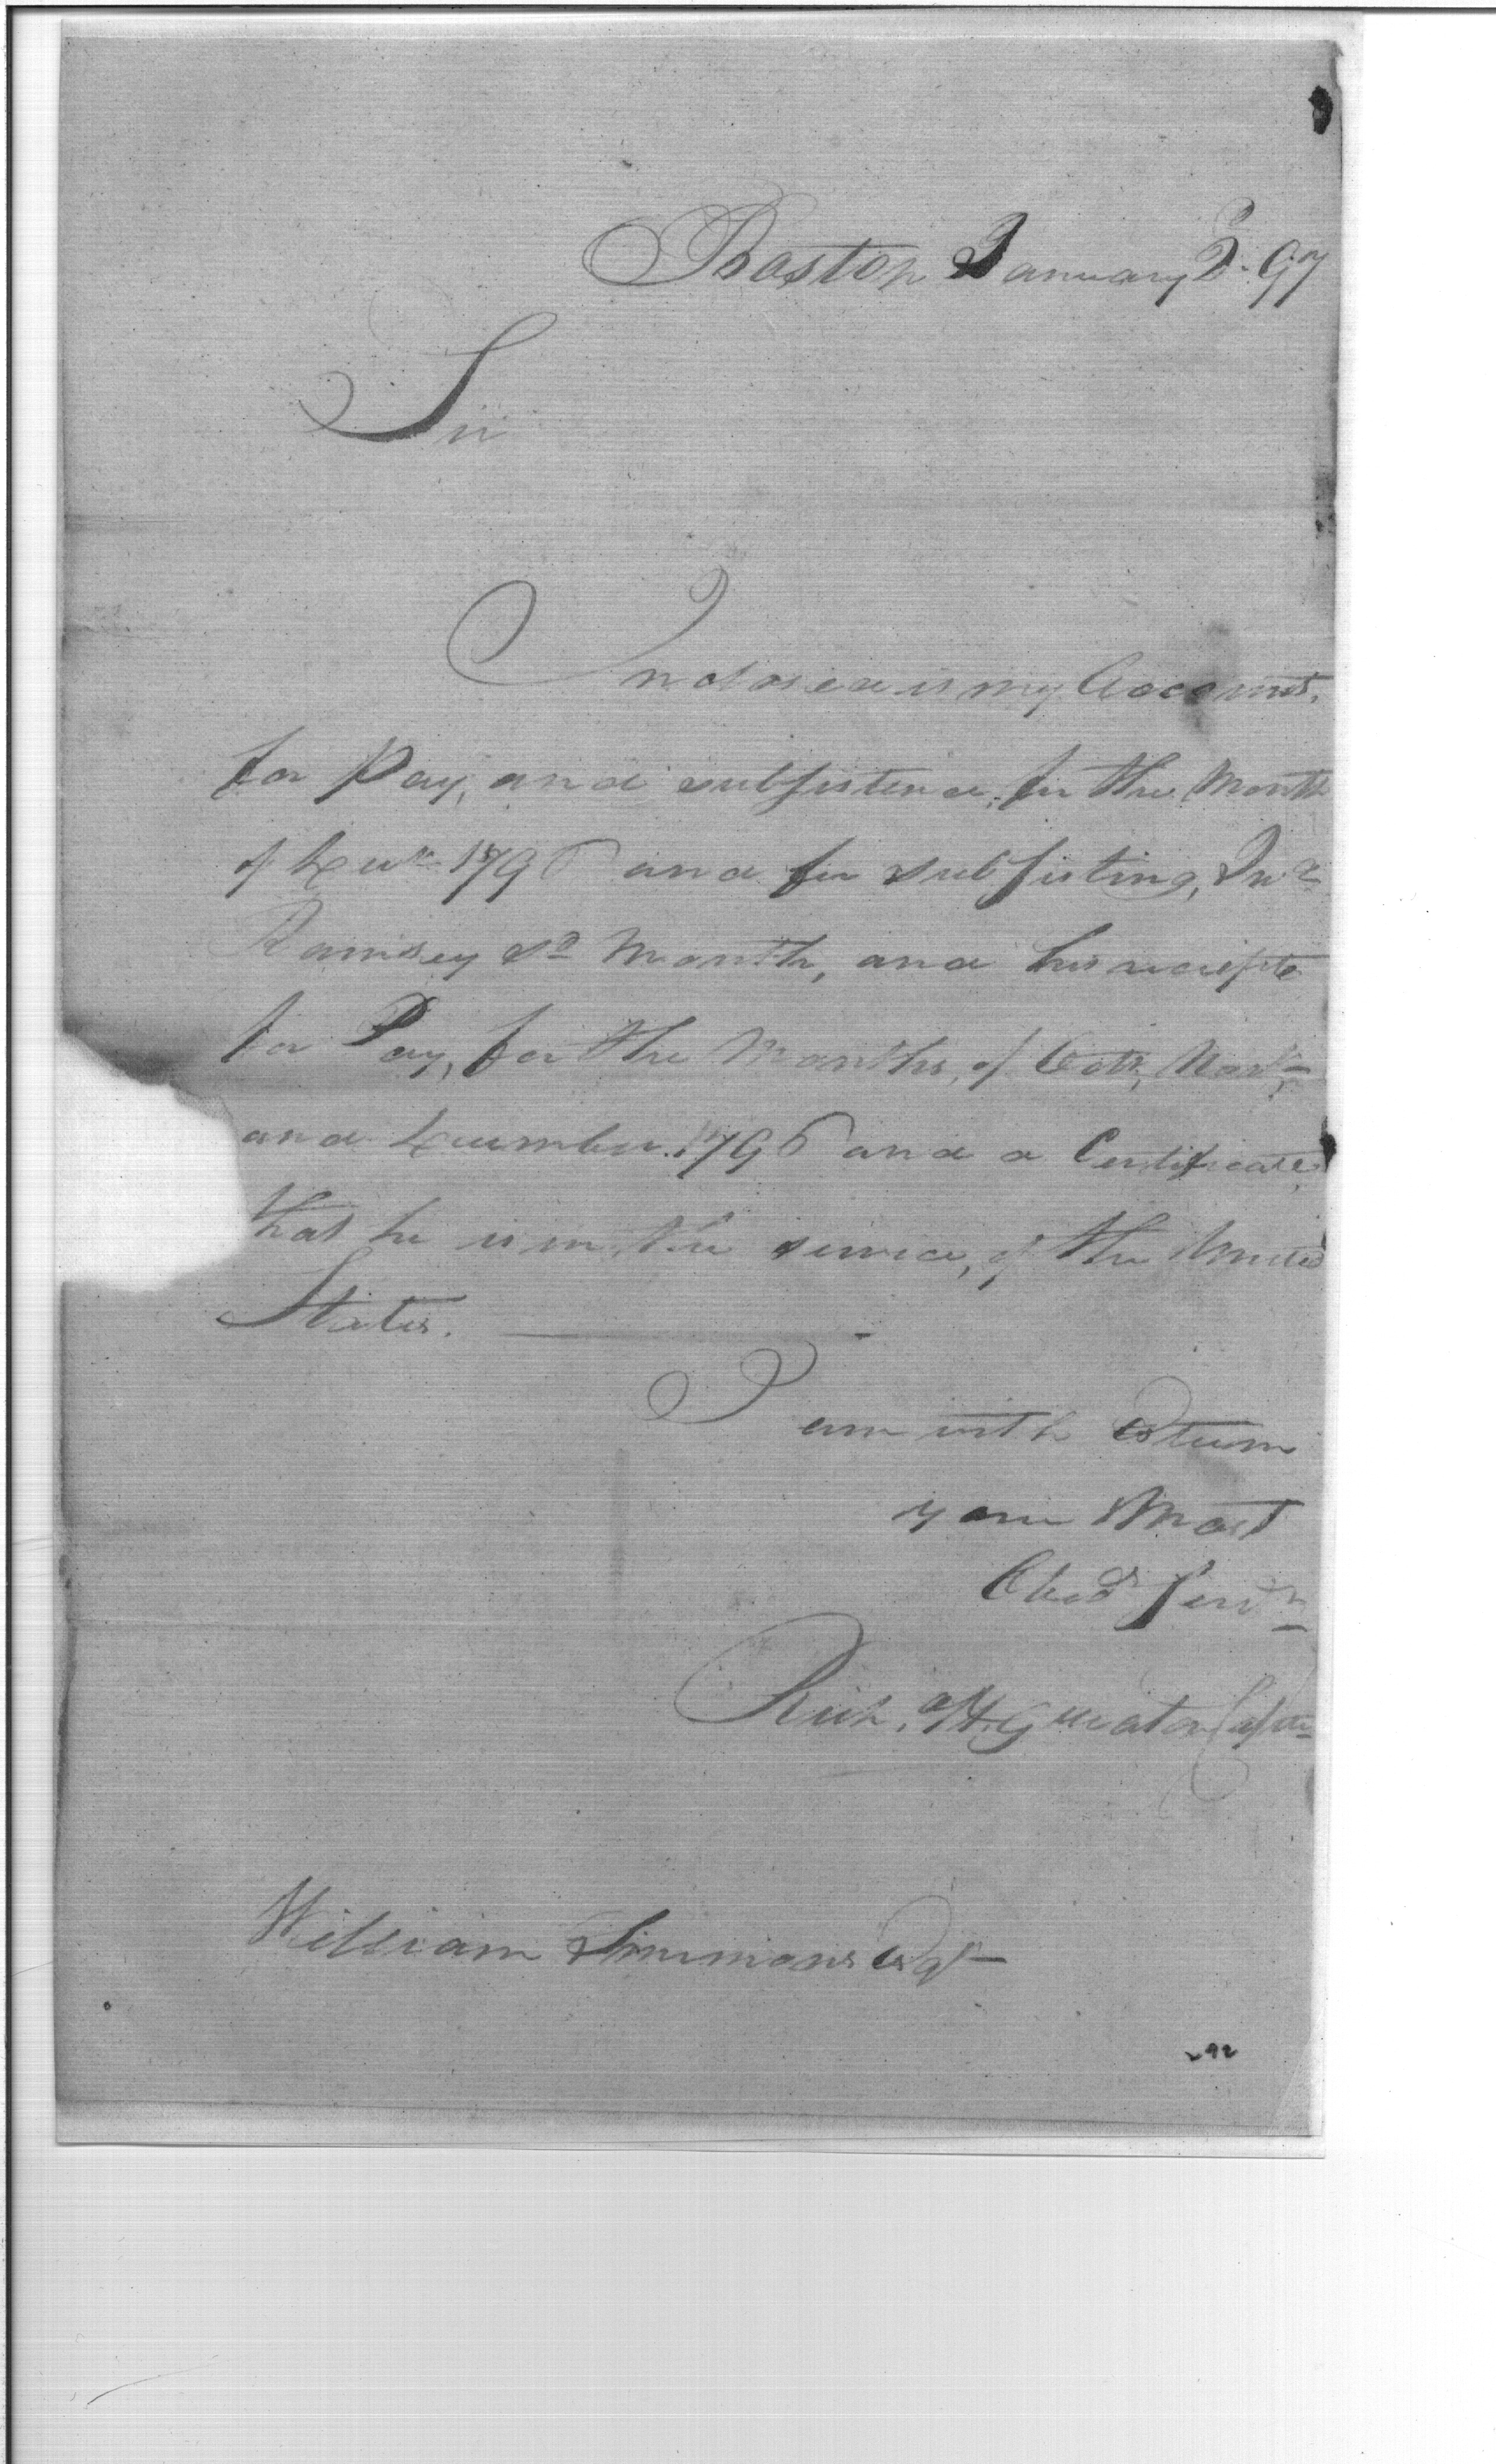 Boston January 2. 97
Sir
Inclosed is my Account,
for Pay, and subsistence, for the Month
of Decr 1796 and for subsisting, Jno
Ramsey sd Month, and his reciepts
for Pay, for the Months, of Octr, Novr,
and December. 1796 and a Certificate,
that he is in the service, of the United
States.
I am with Esteem
your Most
Obedt Servt
Richd H. Greaton Captn
William Simmons Esqr